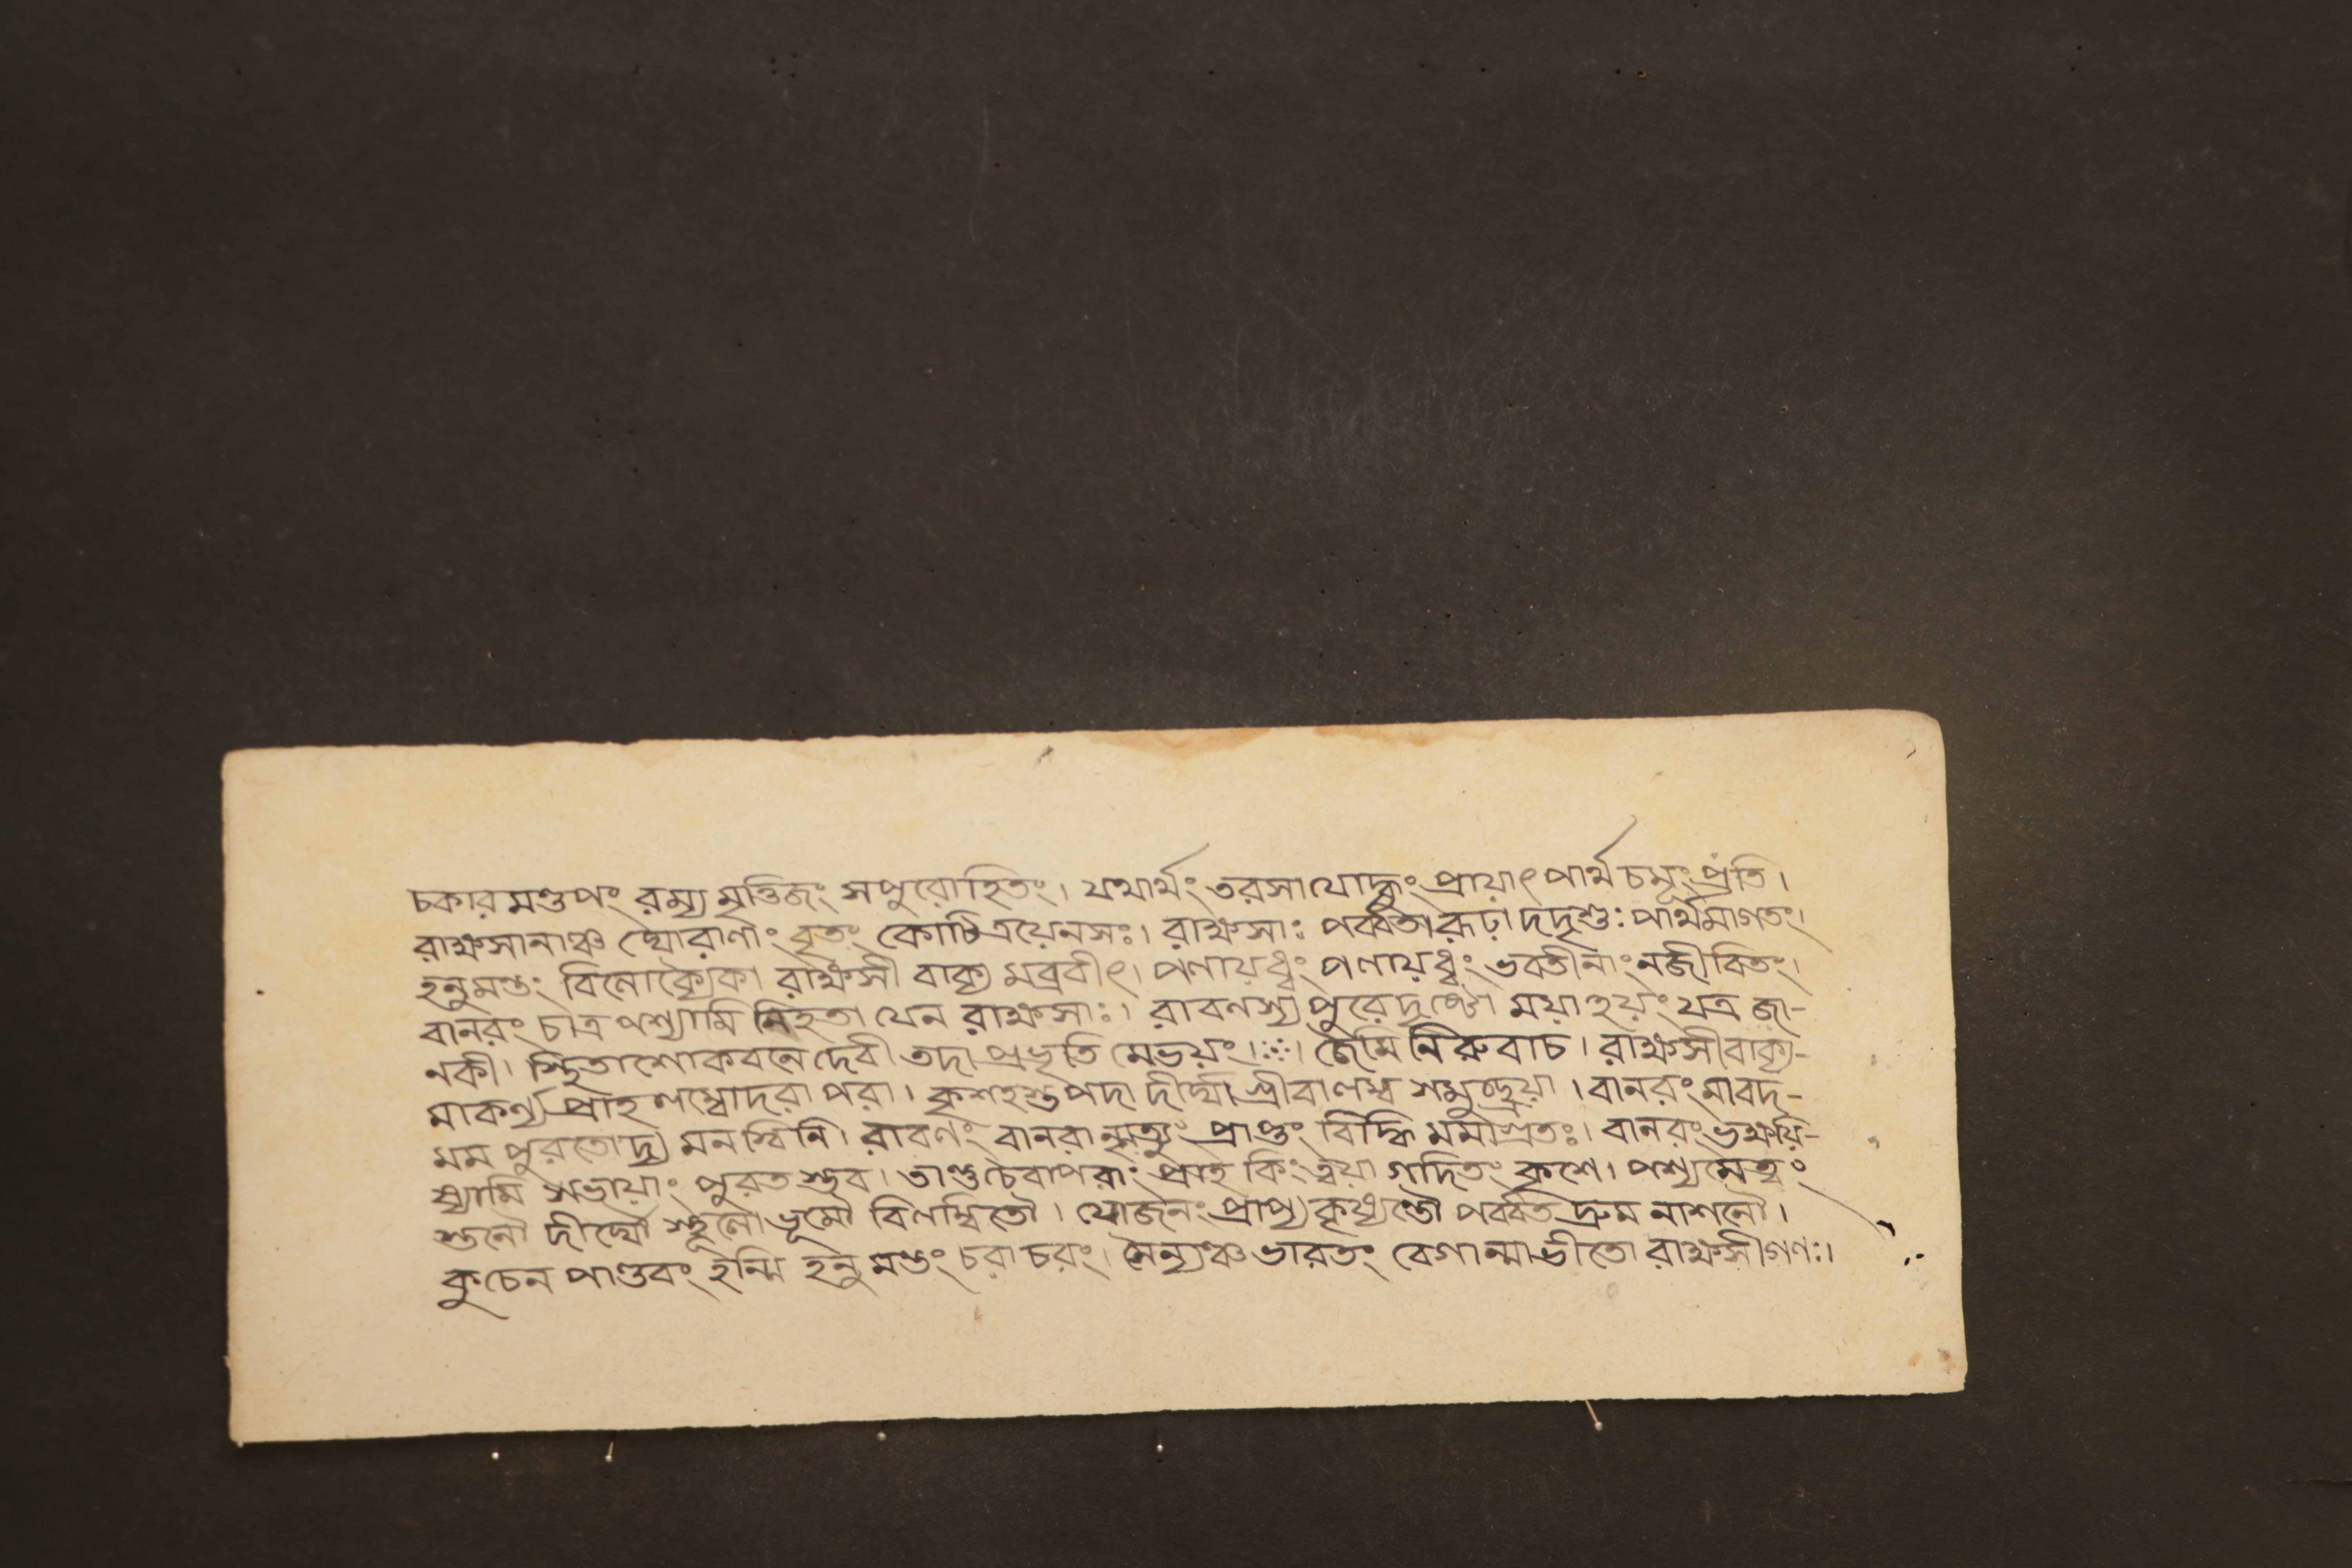 চকার মণ্ডপং রম্য মৃত্তিজং সপুরোহিতং। যথার্থং তরসা যোদ্ধুং প্রায়াৎ পার্থ চমূং প্রতি।
রাক্ষসানাঞ্চ ঘোরাণাং বৃতং কোটি ত্রয়েনসঃ। রাক্ষসাঃ পর্ব্বতারূঢ়া দদৃশুঃ পার্থমাগতং।
হনুমন্তং বিলোক্যৈকা রাক্ষসী বাক্য মব্রবীৎ। পলায়ধ্বং পলায়ধ্বং ভবতীনাং নজীবিতং।
বানরং চাত্র পশ্যামি নিহতা যেন রাক্ষসাঃ। রাবণস্য পুরে দৃষ্টো ময়া হয়ং যত্র জা-
নকী। স্থিতাশোকবনে দেবী তদা প্রভৃতি মেভয়ং।ঃ। জৈমিনিরুবাচ। রাক্ষসী বাক্য-
মাকর্ণ্য প্রাহ লম্বোদরা পরা। কৃশহস্তপদা দীর্ঘা গ্রীবালম্ব সমুচ্ছ্রয়া। বানরং মাবদ-
মম পুরতোদ্য মনস্বিনি। রাবণং বানরান্মৃত্যুং প্রাপ্তং বিদ্ধি মমাগ্রতঃ। বানরং ভক্ষয়ি-
ষ্যামি সভায়াং পুরত স্তব। তাঞ্চৈবাপরাং প্রাহ কিং ত্বয়া গদিতং কৃশে। পশ্যমেত্বং
স্তনৌ দীর্ঘৌ স্থূলৌ ভূমৌ বিলম্বিতৌ। যোজনং প্রাপ্য কৃষ্যন্তৌ পর্ব্বত দ্রুম নাশনৌ।
কুচেন পাণ্ডবং হন্মি হনুমন্তং চরাচরং। সৈন্যঞ্চ ভারতং বেগান্মাভীতো রাক্ষসীগণঃ।